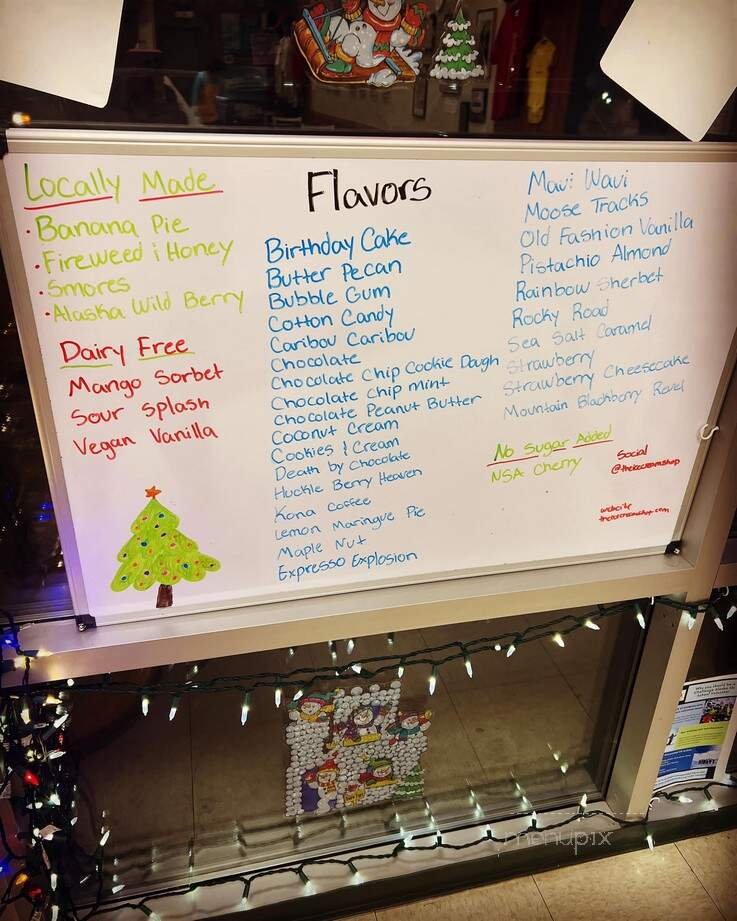 Locally Made
· Banana Pie
· Fireweed & Honey
· Smores
· Alaska Wild Berry
Dairy Free
Mango Sorbet
Sour Splash
Vegan Vanilla
Flavors
Birthday Cake
Butter Pecan
Bubble Gum
Cotton Candy
Caribou Caribou
Chocolate
Chocolate Chip Cookie Dough
Chocolate chip mint
Chocolate Peanut Butter
Coconut Cream
Cookies & Cream
Death by Chocolate
Huckle Berry Heaven
Kona Coffee
Lemon Maringue Pie
Maple Nut
Expresso Explosion
Maui Wavi
Moose Tracks
Old Fashion Vanilla
Pistachio Almond
Rainbow Sherbet
Rocky Road
Sea Salt Caramel
Strawberry
Strawberry Cheesecake
Mountain Blackberry Revel
No Sugar Added
NSA Cherry
Social
@theicecreamshop
website
menupix